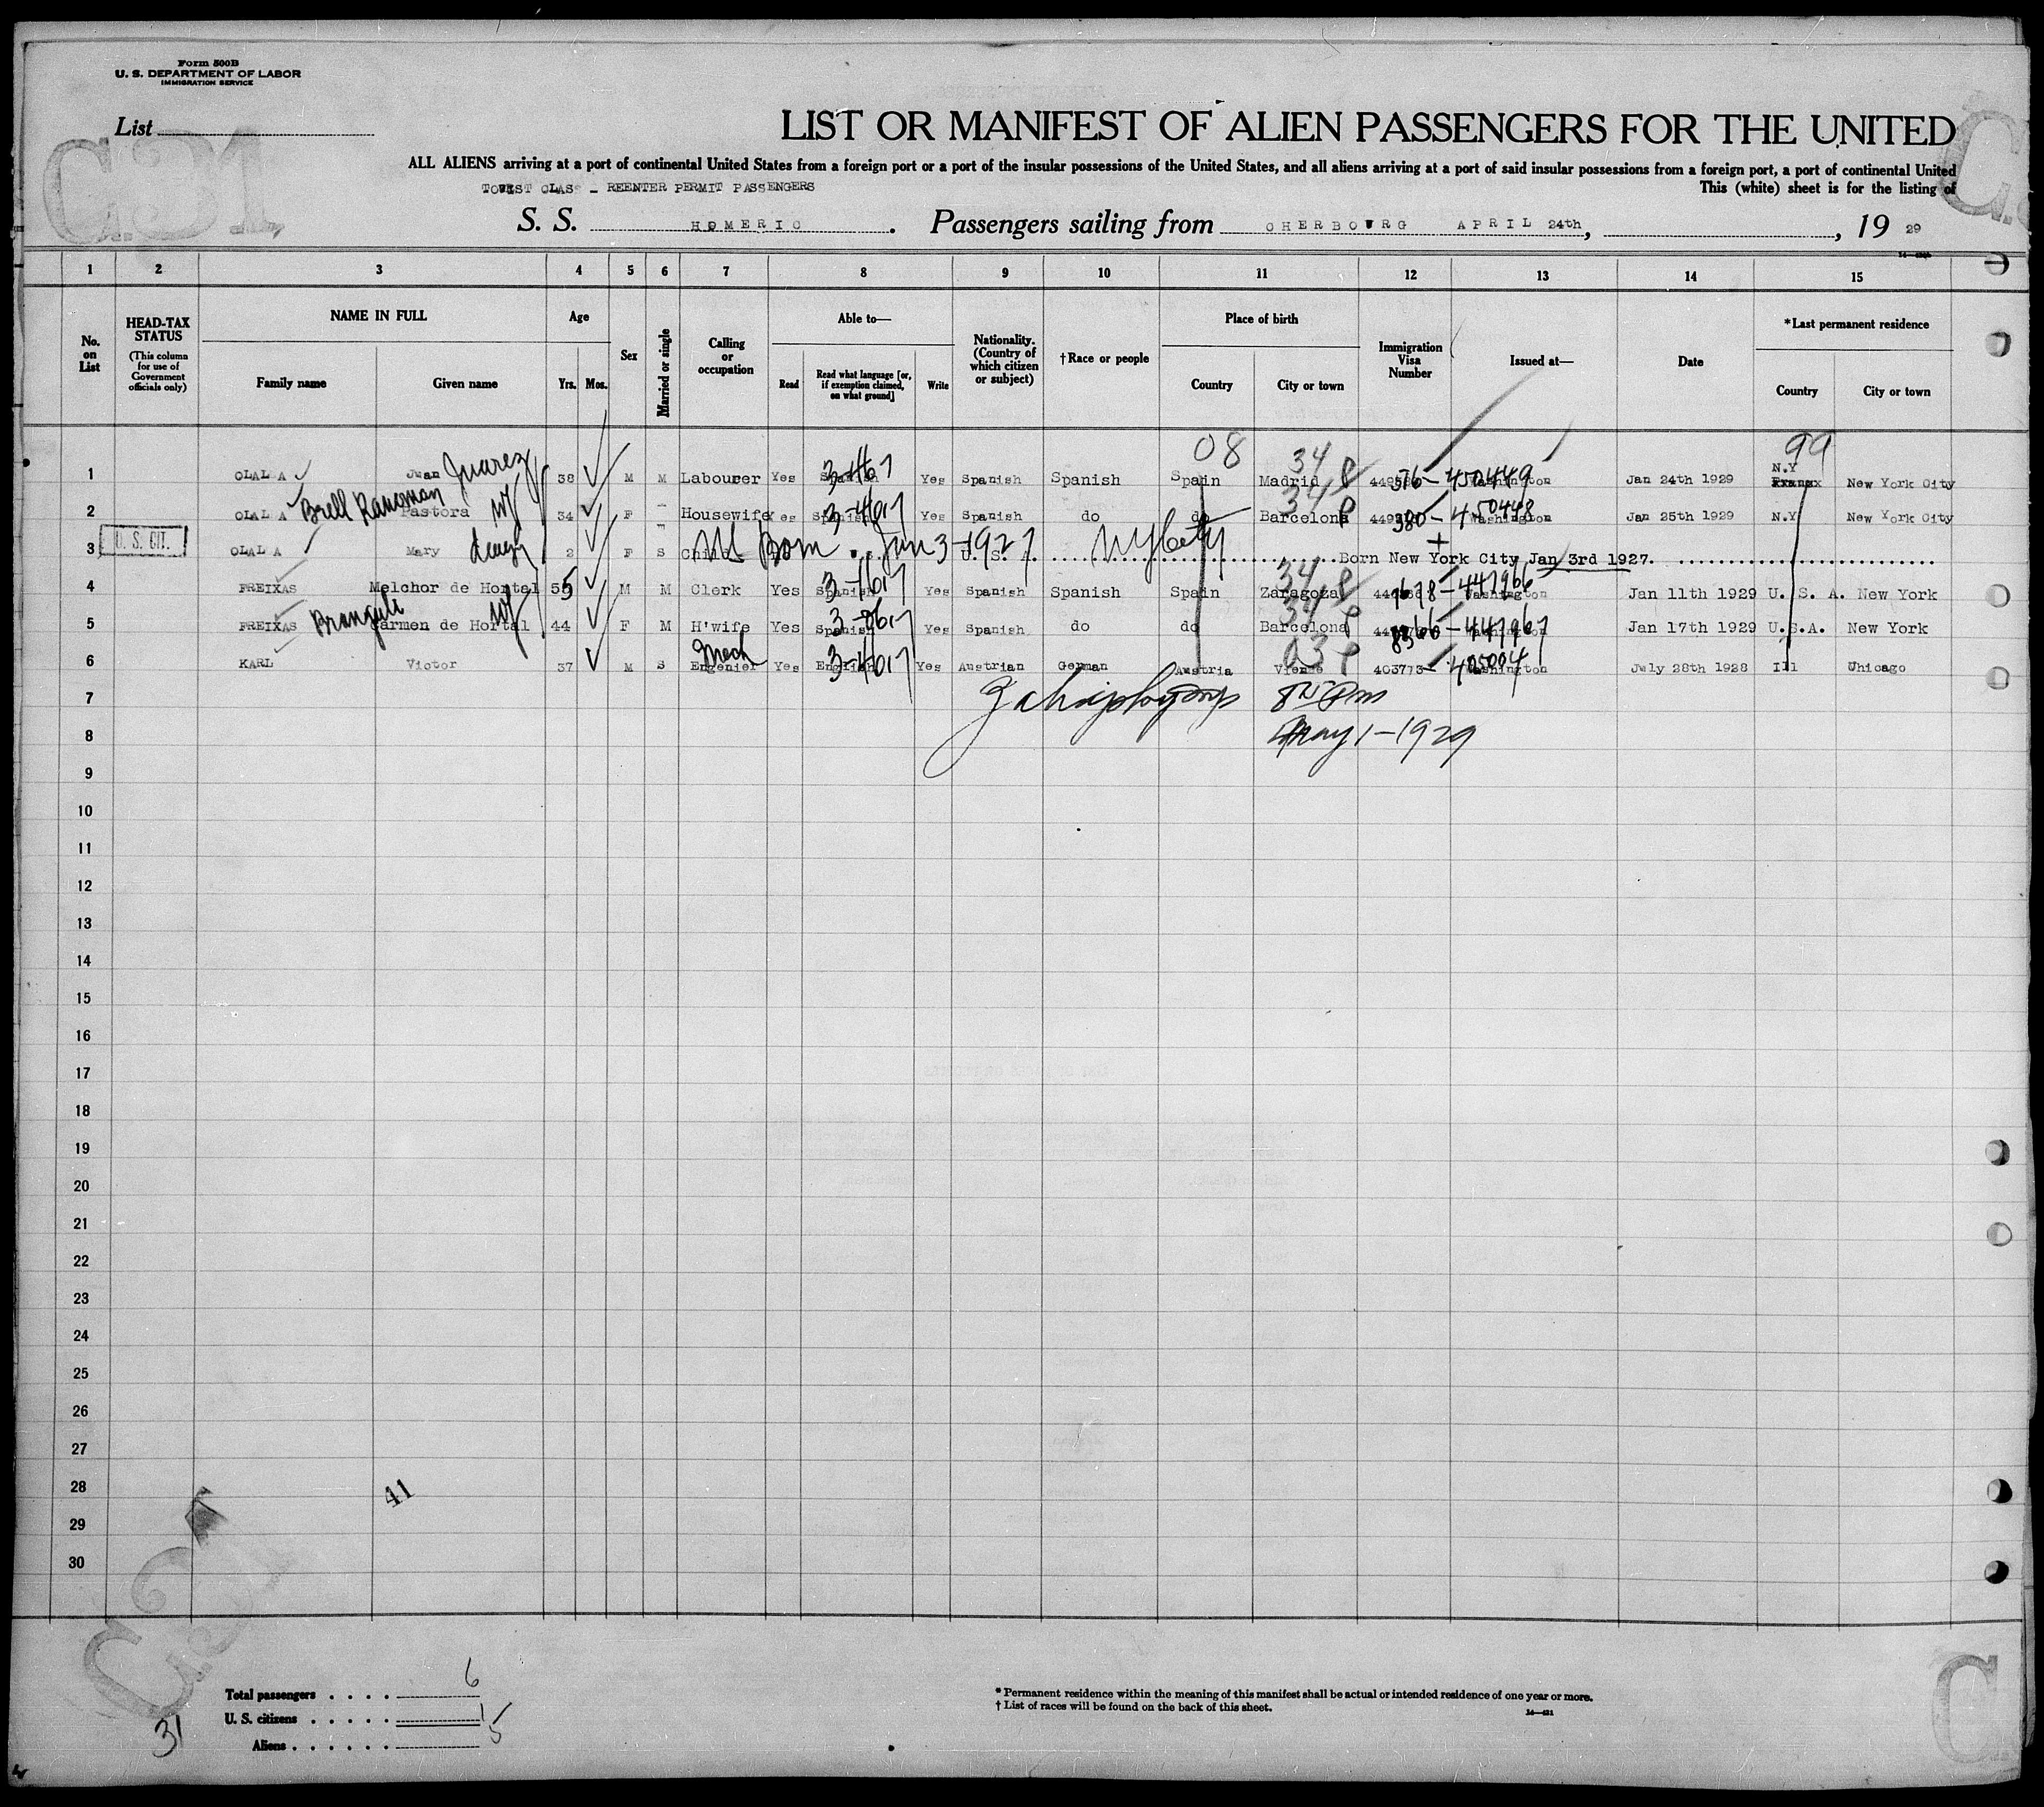 Form 500B
U. S. DEPARTMENT OF LABOR
IMMIGRATION SERVICE
List
C31
LIST OR MANIFEST OF ALIEN PASSENGERS FOR THE UNITED
ALL ALIENS arriving at a port of continental United States from a foreign port or a port of the insular possessions of the United States, and all aliens arriving at a port of said insular possessions from a foreign port, a port of continental United
This (white) sheet is for the listing of
TOURIST CLASS - REENTER PERMIT PASSENGERS
S. S. HOMERIC. Passengers sailing from CHERBOURG APRIL 24th, , 19 29
1 2 3 4 5 6 7 8 9 10 11 12 13 14 15
No. on List
HEAD-TAX STATUS
(This column for use of Government officials only)
NAME IN FULL
Family name Given name
Age
Yrs. Mos.
Sex
Married or single
Calling or occupation
Able to—
Read
Read what language [or, if exemption claimed, on what ground]
Write
Nationality. (Country of which citizen or subject)
†Race or people
Place of birth
Country City or town
Immigration Visa Number
Issued at—
Date
*Last permanent residence
Country City or town
08 99
1 OLALLA Juan Juarez 38 M M Labourer Yes Spanish Yes Spanish Spanish Spain Madrid 34 376-450449 Washington Jan 24th 1929 N.Y New York City
2 OLALLA Brell Pastora wf 34 F Housewife Yes Spanish Yes Spanish do do Barcelona 34 380-450448 Washington Jan 25th 1929 N.Y New York City
3 U. S. CIT. OLALLA Mary 2 F S Child Born Jan 3-1927 U. S. A. NY City Born New York City Jan 3rd 1927.
4 FREIXAS Melchor de Hortal 55 M M Clerk Yes Spanish Yes Spanish Spanish Spain Zaragoza 34 447966 Washington Jan 11th 1929 U. S. A. New York
5 FREIXAS Carmen de Hortal wf 44 F M H'wife Yes Spanish Yes Spanish do do Barcelona 34 447967 Washington Jan 17th 1929 U.S.A. New York
6 KARL Victor 37 M S Engenier Mech Yes English Yes Austrian German Austria Vienna 03 403773- 405004 Washington July 28th 1928 Ill Chicago
7
8 May 1-1929
9
10
11
12
13
14
15
16
17
18
19
20
21
22
23
24
25
26
27
28 41
29
30
Total passengers 6
U. S. citizens 1
Aliens 5
31
* Permanent residence within the meaning of this manifest shall be actual or intended residence of one year or more.
† List of races will be found on the back of this sheet.
14—421
C